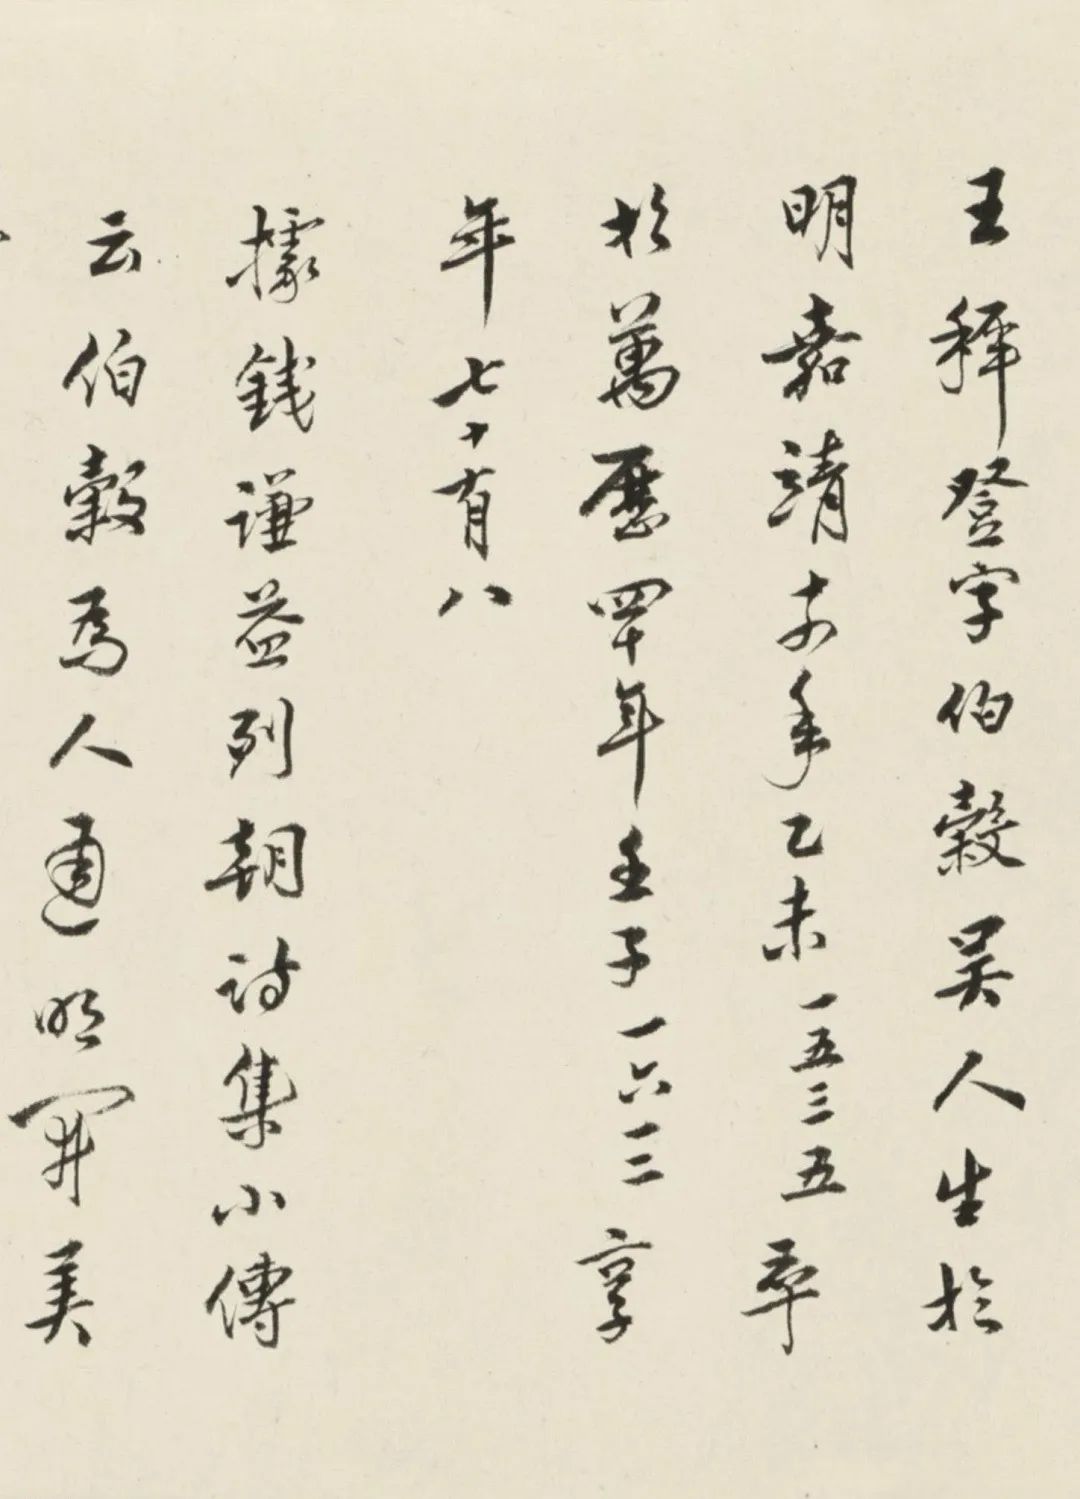 王稺登字伯穀吴人生於
明嘉靖十四年乙未一五三五卒
於萬曆四十年壬子一六一二享
年七十有八
據錢謙益列朝詩集小傳
云伯穀為人通明開美